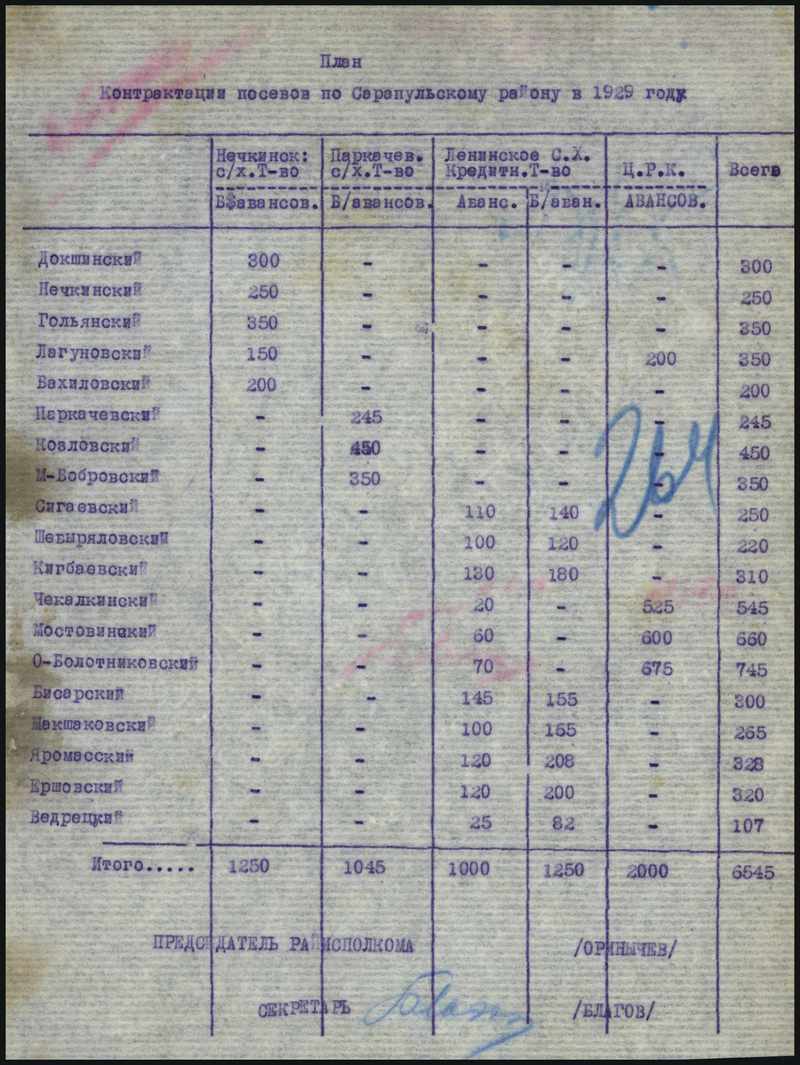 План
Контрактации посевов по Сарапульскому району в 1929 году
Нечкинск: Паркачев. Ленинское С.Х.
с/х.Т-во с/х.Т-во Кредитн.Т-во Ц.Р.К. Всего
Б/авансов. Б/авансов. Аванс. Б/аван. АВАНСОВ.
Докшинский 300 - - - - 300
Нечкинский 250 - - - - 250
Гольянский 350 - - - - 350
Лагуновский 150 - - - 200 350
Вахиловский 200 - - - - 200
Паркачевский - 245 - - - 245
Козловский - 450 - - - 450
М-Бобровский - 350 - - - 350
Сигаевский - - 110 140 - 250
Шевыряловский - - 100 120 - 220
Кигбаевский - - 130 180 - 310
Чекалкинский - - 20 - 525 545
Мостовинский - - 60 - 600 660
О-Болотниковский - - 70 - 675 745
Бисарский - - 145 155 - 300
Макшаковский - - 100 165 - 265
Яромасский - - 120 208 - 328
Ершовский - - 120 200 - 320
Ведрецкий - - 25 82 - 107
Итого..... 1250 1045 1000 1250 2000 6545
264
ПРЕДСЕДАТЕЛЬ РАЙИСПОЛКОМА /ОРИНЫЧЕВ/
СЕКРЕТАРЬ /БЛАГОВ/